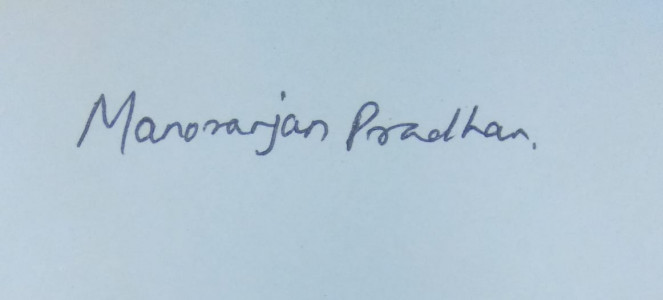 Manoranjan Pradhan.